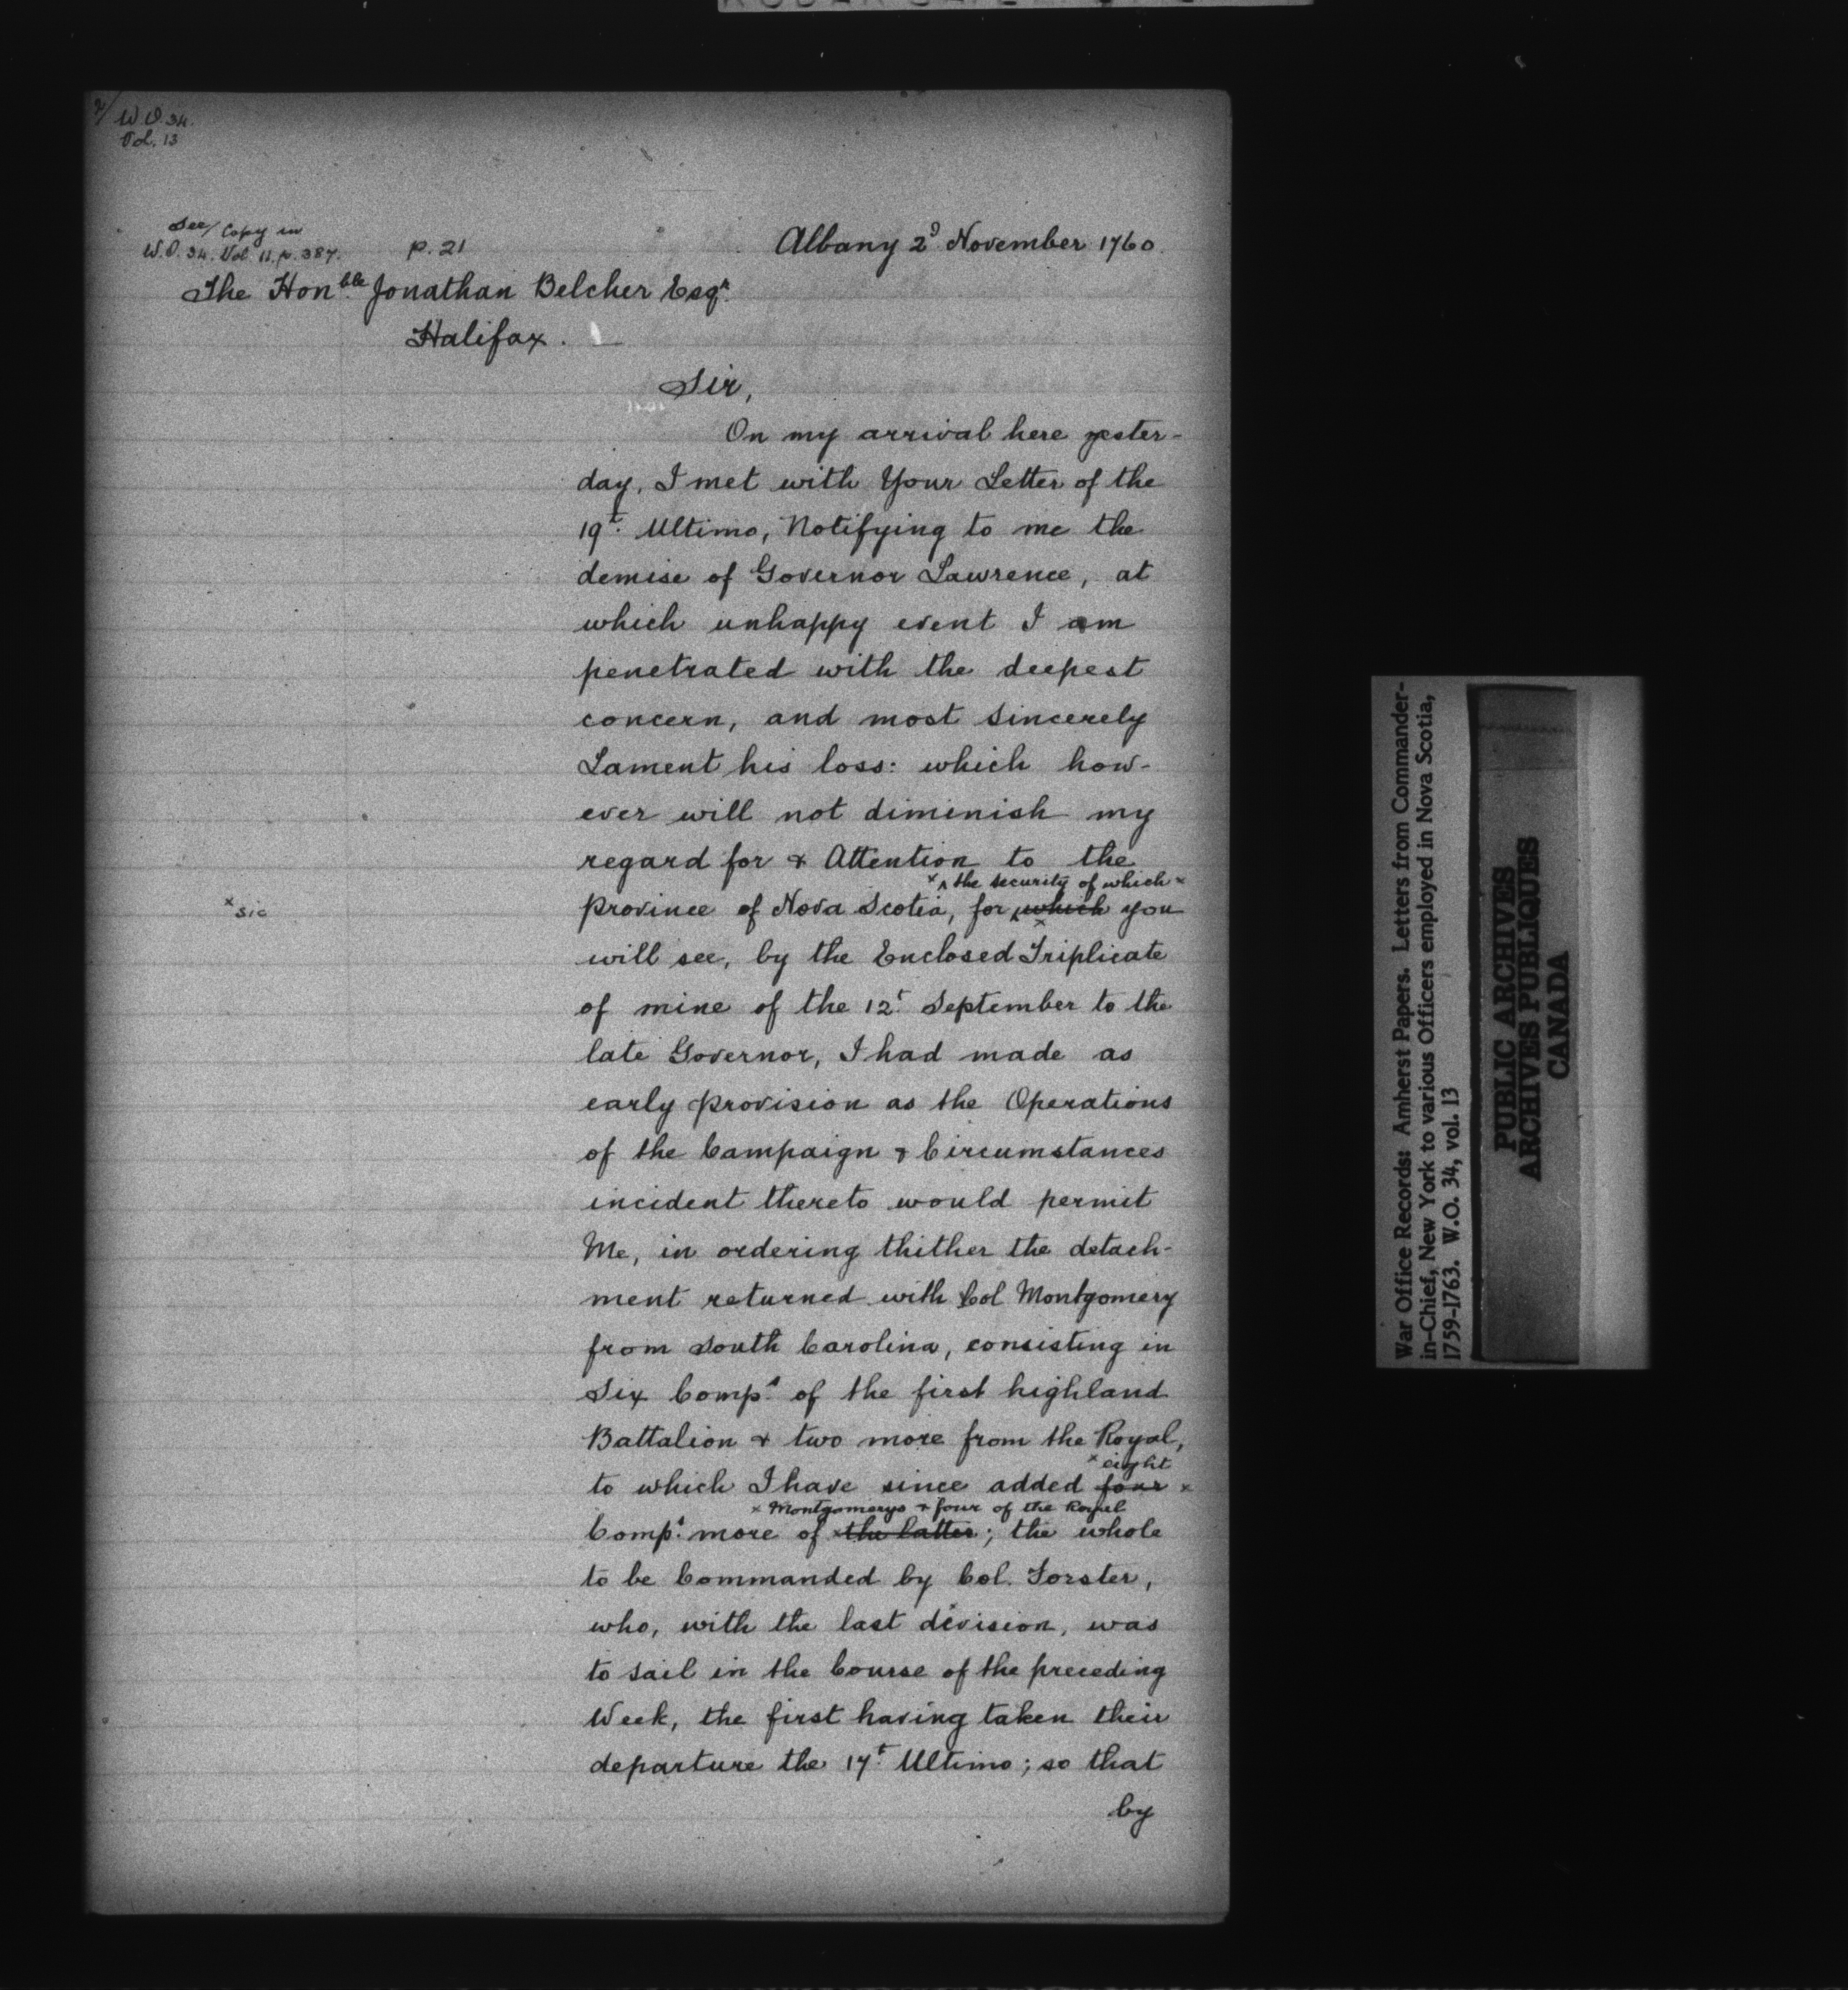 2/ W.O. 34.
Vol. 13
See/ Copy in
W.O. 34. Vol. 11. p. 387.
p. 21
Albany 2d November 1760.
The Honble Jonathan Belcher Esqr.
Halifax.
Sir,
On my arrival here yester-
day, I met with Your Letter of the
19t. Ultimo, Notifying to me the
demise of Governor Lawrence, at
which unhappy event I am
penetrated with the deepest
concern, and most sincerely
Lament his loss: which how-
ever will not diminish my
regard for & Attention to the
x ^ the security of which x
x sic
province of Nova Scotia, for ^ which you
will see, by the Enclosed Triplicate
of mine of the 12t. September to the
late Governor, I had made as
early provision as the Operations
of the Campaign & Circumstances
incident thereto would permit
Me, in ordering thither the detach-
ment returned with Col Montgomery
from South Carolina, consisting in
Six Comps. of the first highland
Battalion & two more from the Royal,
x eight
to which I have since added four x
x Montgomerys + four of the Royal
Comps. more of x the latter; the whole
to be Commanded by Col. Forster,
who, with the last division, was
to sail in the Course of the preceding
Week, the first having taken their
departure the 17t. Ultimo; so that
by
War Office Records: Amherst Papers. Letters from Commander-
in-Chief, New York to various Officers employed in Nova Scotia,
1759-1763. W.O. 34, vol. 13
PUBLIC ARCHIVES
ARCHIVES PUBLIQUES
CANADA